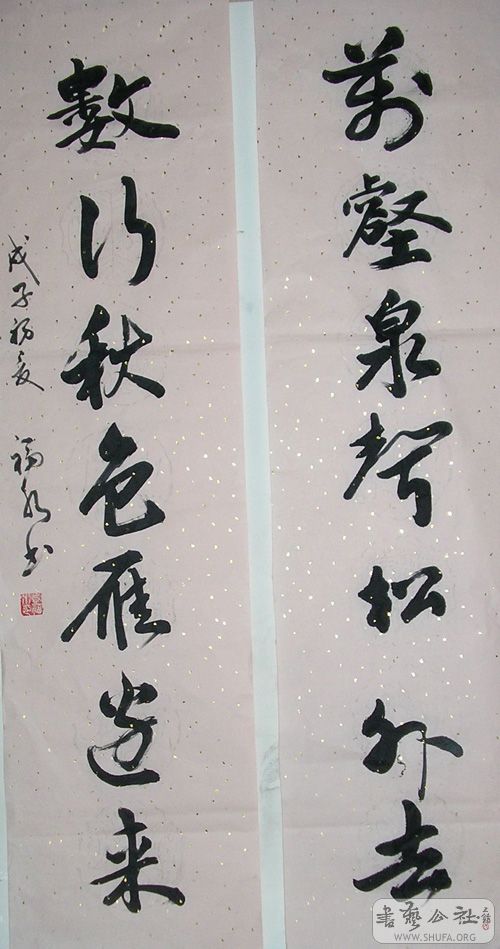 萬壑泉聲松外去
數行秋色雁邊来
戊子初夏 福永书
書藝公社
WWW.SHUFA.ORG